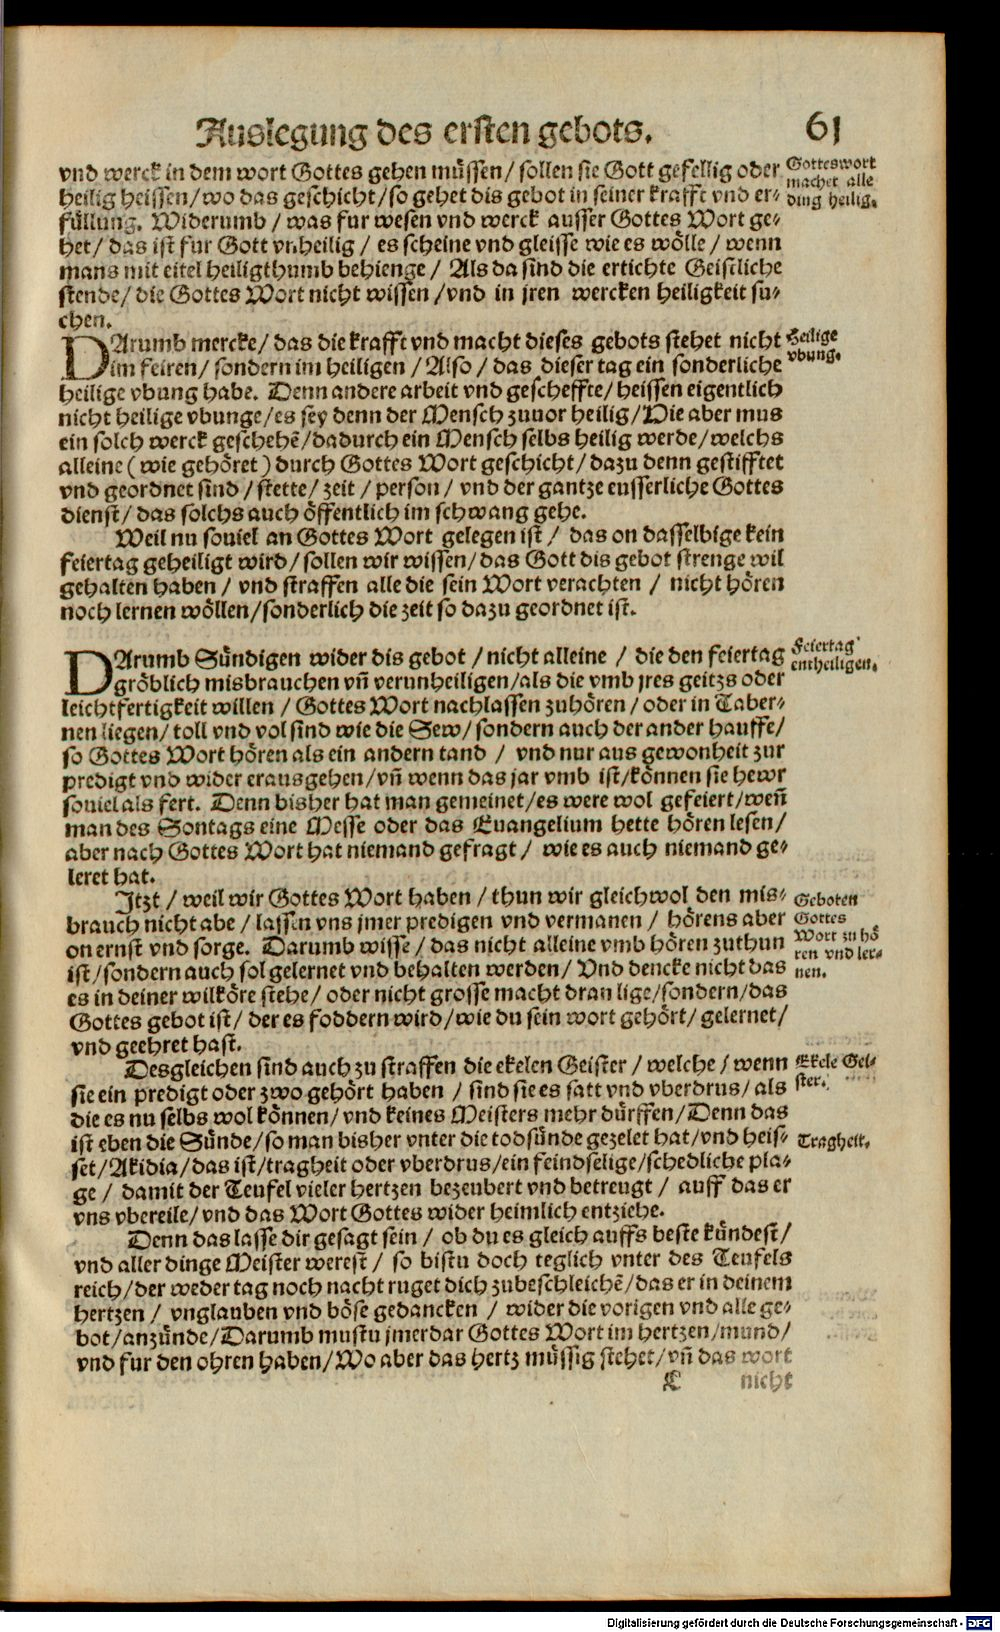 Auslegung des ersten gebots. 61
vnd werck in dem wort Gottes gehen müssen / sollen sie Gott gefellig oder
heilig heissen / wo das geschicht / so gehet dis gebot in seiner krafft vnd er-
füllung. Widerumb / was fur wesen vnd werck ausser Gottes Wort ge-
het / das ist fur Gott vnheilig / es scheine vnd gleisse wie es wölle / wenn
mans mit eitel heiligthumb behienge / Als da sind die ertichte Geistliche
stende / die Gottes Wort nicht wissen / vnd in jren wercken heiligkeit su-
chen.
Gotteswort
machet alle
ding heilig.
DArumb mercke / das die krafft vnd macht dieses gebots stehet nicht
im feiren / sondern im heiligen / Also / das dieser tag ein sonderliche
heilige vbung habe. Denn andere arbeit vnd gescheffte / heissen eigentlich
nicht heilige vbunge / es sey denn der Mensch zuuor heilig / Die aber mus
ein solch werck geschehē / dadurch ein Mensch selbs heilig werde / welchs
alleine (wie gehöret) durch Gottes Wort geschicht / dazu denn gestifftet
vnd geordnet sind / stette / zeit / person / vnd der gantze eusserliche Gottes
dienst / das solchs auch öffentlich im schwang gehe.
Heilige
vbung.
Weil nu souiel an Gottes Wort gelegen ist / das on dasselbige kein
feiertag geheiligt wird / sollen wir wissen / das Gott dis gebot strenge wil
gehalten haben / vnd straffen alle die sein Wort verachten / nicht hören
noch lernen wöllen / sonderlich die zeit so dazu geordnet ist.
DArumb Sündigen wider dis gebot / nicht alleine / die den feiertag
gröblich misbrauchen vñ verunheiligen / als die vmb jres geitzs oder
leichtfertigkeit willen / Gottes Wort nachlassen zuhören / oder in Taber-
nen liegen / toll vnd vol sind wie die Sew / sondern auch der ander hauffe /
so Gottes Wort hören als ein andern tand / vnd nur aus gewonheit zur
predigt vnd wider erausgehen / vñ wenn das jar vmb ist / können sie hewr
souiel als fert. Denn bisher hat man gemeinet / es were wol gefeiert / weñ
man des Sontags eine Messe oder das Euangelium hette hören lesen /
aber nach Gottes Wort hat niemand gefragt / wie es auch niemand ge-
leret hat.
Feiertag
entheiligen.
Itzt / weil wir Gottes Wort haben / thun wir gleichwol den mis-
brauch nicht abe / lassen vns jmer predigen vnd vermanen / hörens aber
on ernst vnd sorge. Darumb wisse / das nicht alleine vmb hören zuthun
ist / sondern auch sol gelernet vnd behalten werden / Vnd dencke nicht das
es in deiner wilköre stehe / oder nicht grosse macht dran lige / sondern / das
Gottes gebot ist / der es foddern wird / wie du sein wort gehört / gelernet /
vnd geehret hast.
Geboten
Gottes
Wort zu hö
ren vnd ler-
nen.
Desgleichen sind auch zu straffen die ekelen Geister / welche / wenn
sie ein predigt oder zwo gehört haben / sind sie es satt vnd vberdrus / als
die es nu selbs wol können / vnd keines Meisters mehr dürffen / Denn das
ist eben die Sünde / so man bisher vnter die todsünde gezelet hat / vnd heis-
set / Akidia / das ist / tragheit oder vberdrus / ein feindselige / schedliche pla-
ge / damit der Teufel vieler hertzen bezeubert vnd betreugt / auff das er
vns vbereile / vnd das Wort Gottes wider heimlich entziehe.
Ekele Gei-
ster.
Tragheit.
Denn das lasse dir gesagt sein / ob du es gleich auffs beste kündest /
vnd aller dinge Meister werest / so bistu doch teglich vnter des Teufels
reich / der weder tag noch nacht ruget dich zubeschleichē / das er in deinem
hertzen / vnglauben vnd böse gedancken / wider die vorigen vnd alle ge-
bot / anzünde / Darumb mustu jmerdar Gottes Wort im hertzen / mund /
vnd fur den ohren haben / Wo aber das hertz müssig stehet / vñ das wort
L nicht
Digitalisierung gefördert durch die Deutsche Forschungsgemeinschaft - DFG